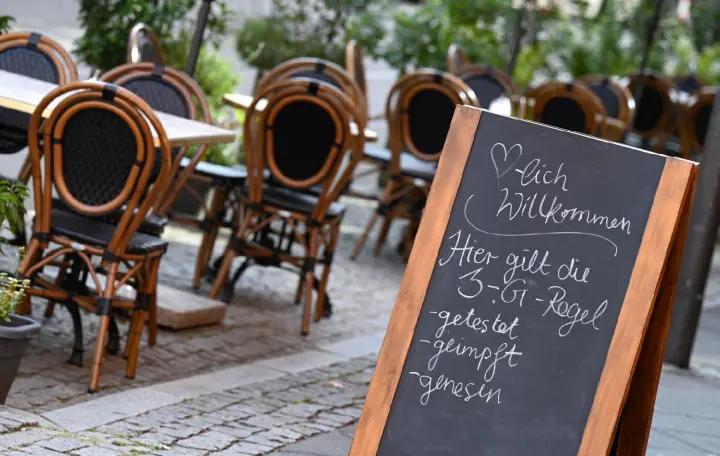 ♡-lich
Willkommen
Hier gilt die
3-G-Regel
-getestet
-geimpft
-genesin